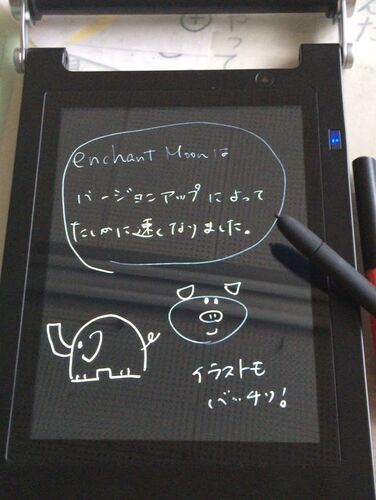 enchant Moonは
バージョンアップによって
たしかに速くなりました。
イラストモ
バッチリ!